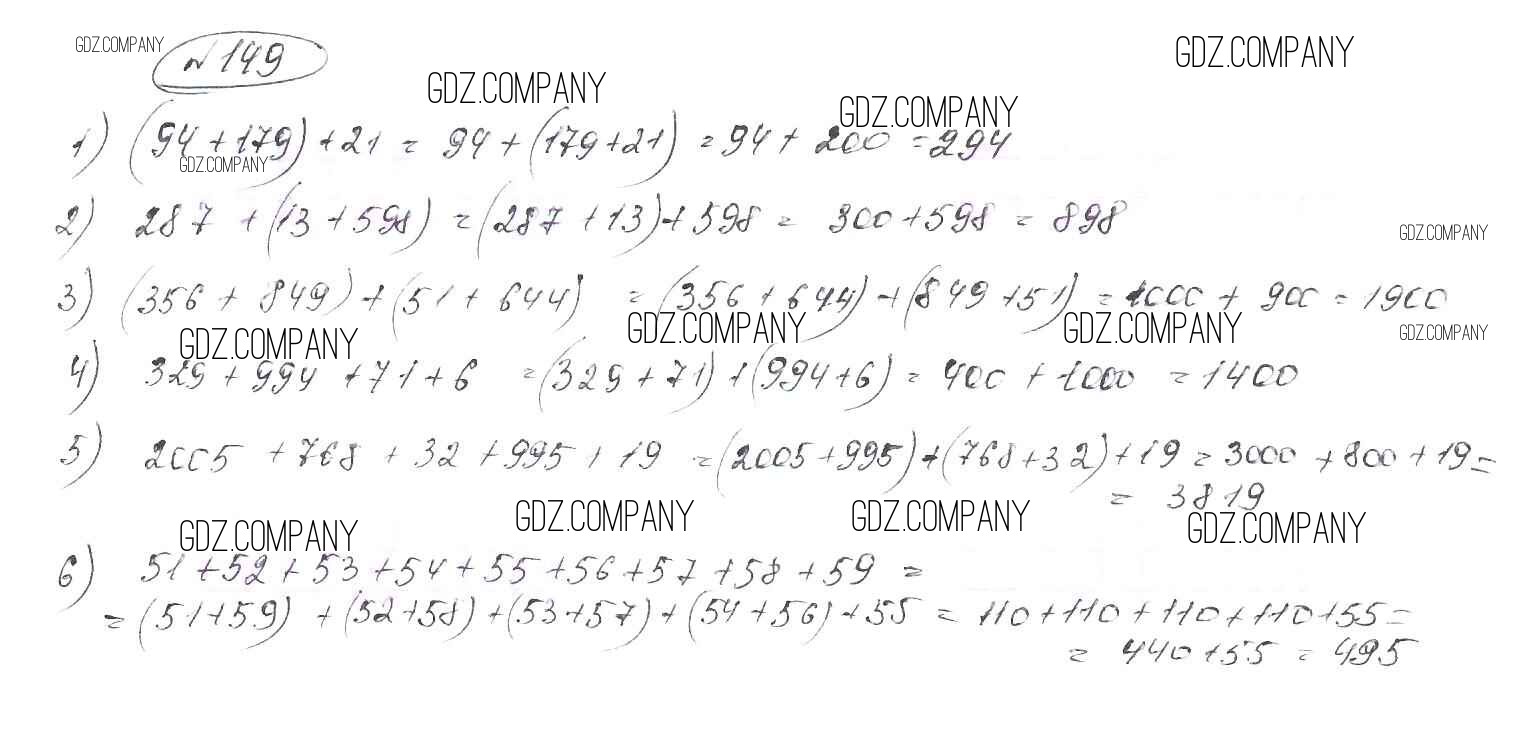 GDZ.COMPANY
№ 149
GDZ.COMPANY
GDZ.COMPANY
GDZ.COMPANY
1) (94 + 179) + 21 = 94 + (179 + 21) = 94 + 200 = 294
GDZ.COMPANY
2) 287 + (13 + 598) = (287 + 13) + 598 = 300 + 598 = 898
GDZ.COMPANY
3) (356 + 849) + (51 + 644) = (356 + 644) + (849 + 51) = 1000 + 900 = 1900
GDZ.COMPANY
GDZ.COMPANY
GDZ.COMPANY
GDZ.COMPANY
4) 329 + 994 + 71 + 6 = (329 + 71) + (994 + 6) = 400 + 1000 = 1400
5) 2005 + 768 + 32 + 995 + 19 = (2005 + 995) + (768 + 32) + 19 = 3000 + 800 + 19 =
= 3819
GDZ.COMPANY
GDZ.COMPANY
GDZ.COMPANY
GDZ.COMPANY
6) 51 + 52 + 53 + 54 + 55 + 56 + 57 + 58 + 59 =
= (51 + 59) + (52 + 58) + (53 + 57) + (54 + 56) + 55 = 110 + 110 + 110 + 110 + 55 =
= 440 + 55 = 495